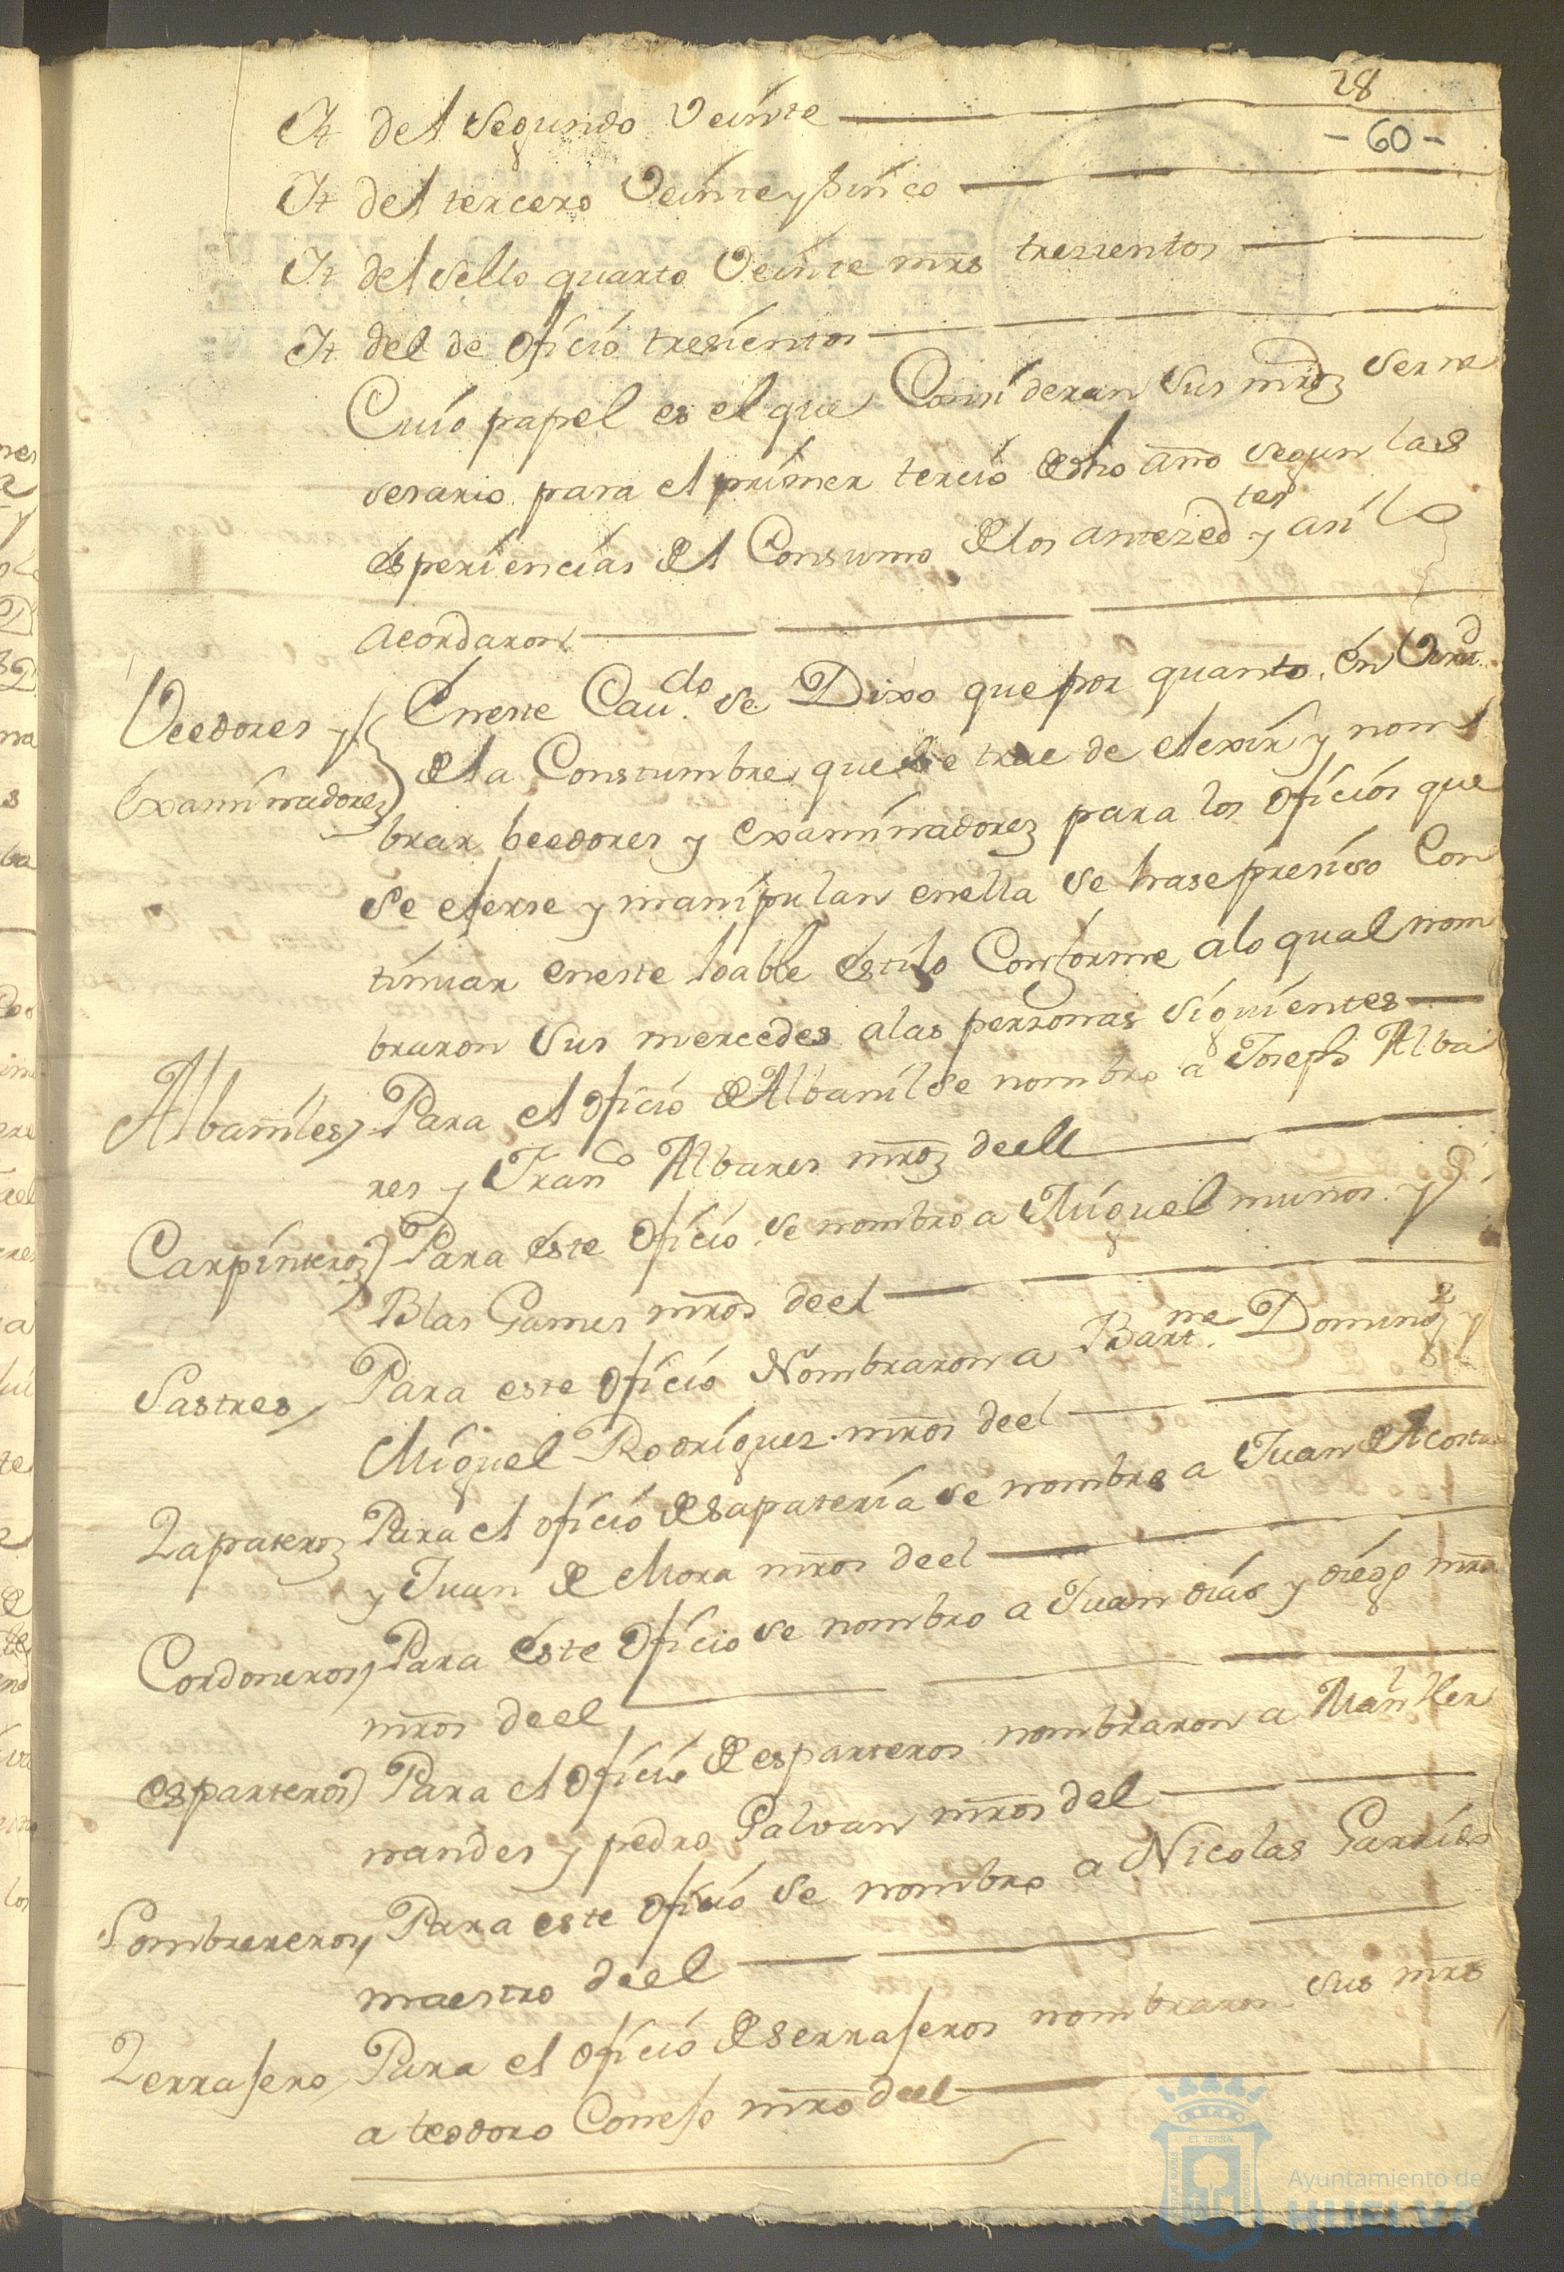 28
- 60 -
It del Segundo Veinte
It del tercero Veinte y sinco
It del Sello quarto Veinte mrs tresientos
It del de oficio tresientos
Cuio papel es el que Consideran Sus mrdz Ser ne
sesario para el primer tercio desto año segun las
esperiencias del Consumo de los antezedtes y asi lo
acordaron
Veedores y
Examinadorez
En este Caudo se Dixo que por quanto, en Virtud
de la Constumbre, que se trae de elexir y nom
brar beedores y examinadorez para los oficios que
se eserse y manipulan en ella se hase presiso Con
tinuar en este loable estilo Conforme a lo qual nom
braron Sus mercedes a las personas siguientes
Albañiles Para el oficio de Albañil se nombro a Joseph Alba
res y Franco Albares mroz de ell
Carpinteroz Para este oficio se nombro a Miguel muños y
Blas Games mros de el
Sastres Para este oficio Nombraron a Bartme Domingz y
Miguel Rodriguez mros de el
Zapateroz Para el oficio de sapateria se nombro a Juan de Acosta
y Juan de Mora mros de el
Cordoneros Para este oficio se nombro a Juan dias y diego mrn
mros de el
esparteros Para el oficio de esparteros nombraron a Manl Her
nandes y pedro Galvan mros del
Sombrereros Para este oficio se nombro a Nicolas Garrido
maestro de el
Zerrasero Para el oficio de serraseros nombraron sus mrds
a teodoro Conejo mro de el
ET TERRAE
Ayuntamiento de
HUELVA